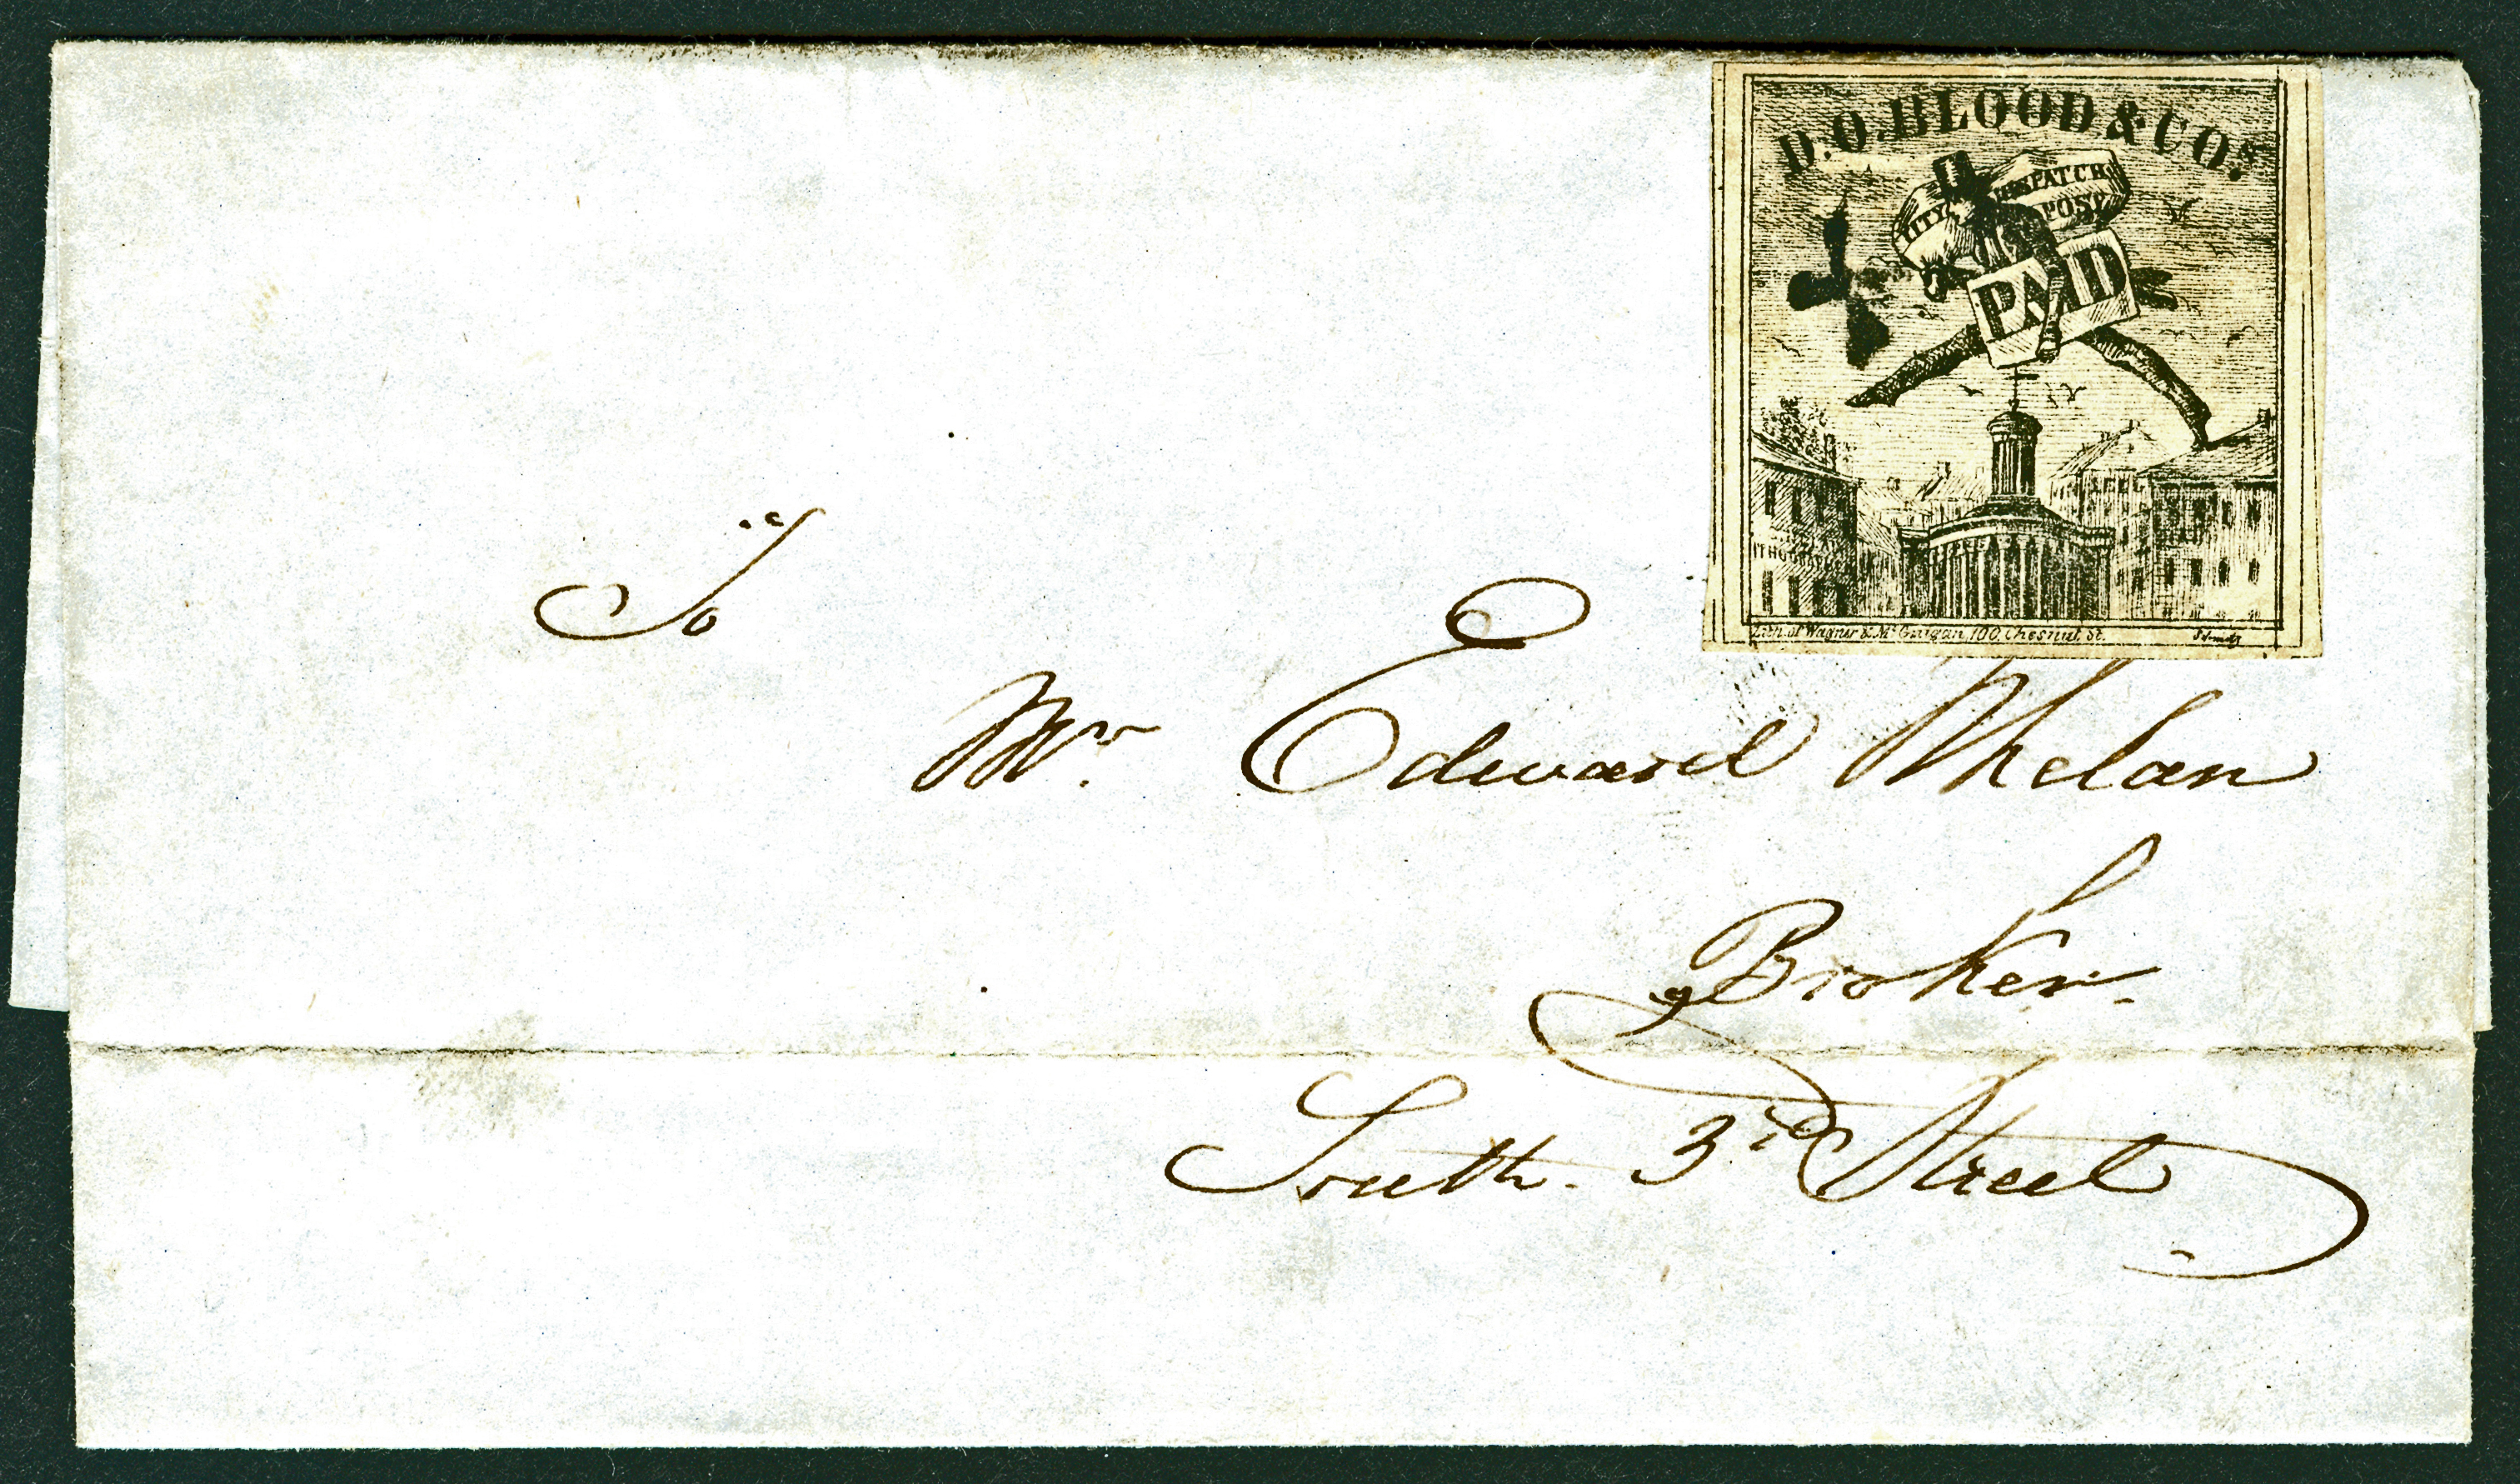 D.O.BLOOD & CO's
CITY DISPATCH
POST
PAID
Lith. of Wagner & McGuigan, 100, Chesnut, St.
To
Mr. Edward Whelan
Broker.
South. 3d Street